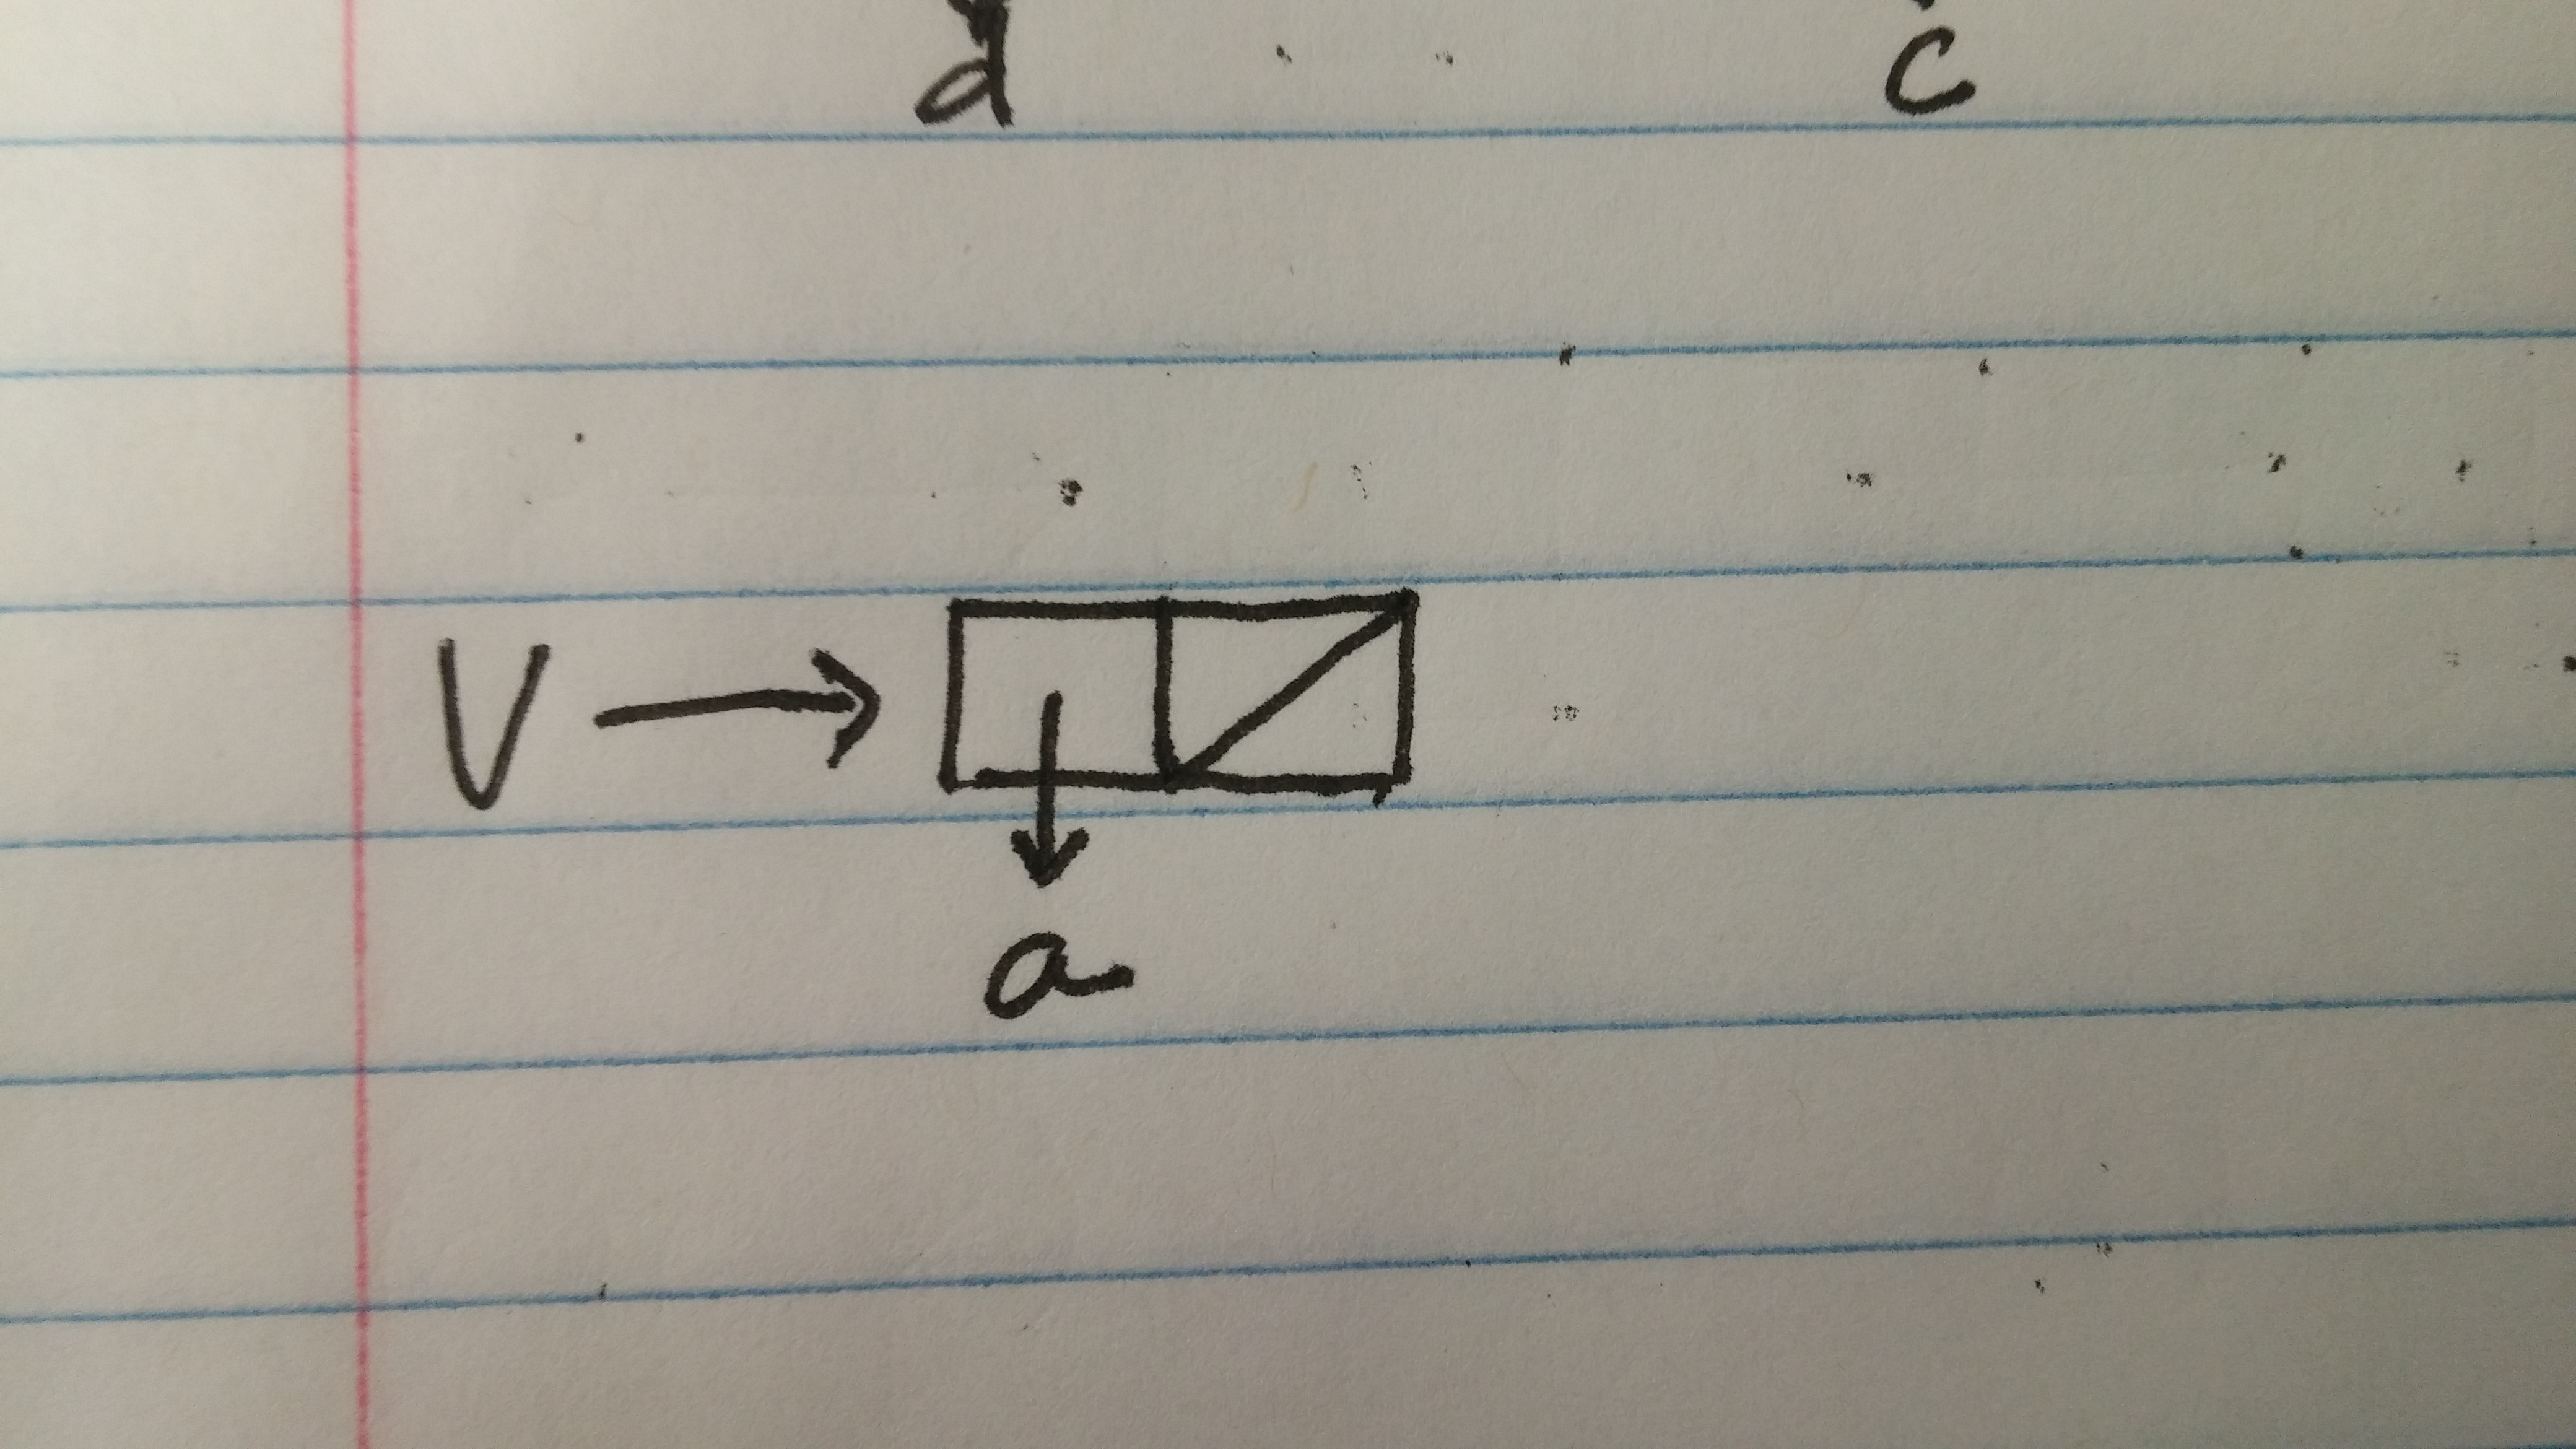 d c
V
a